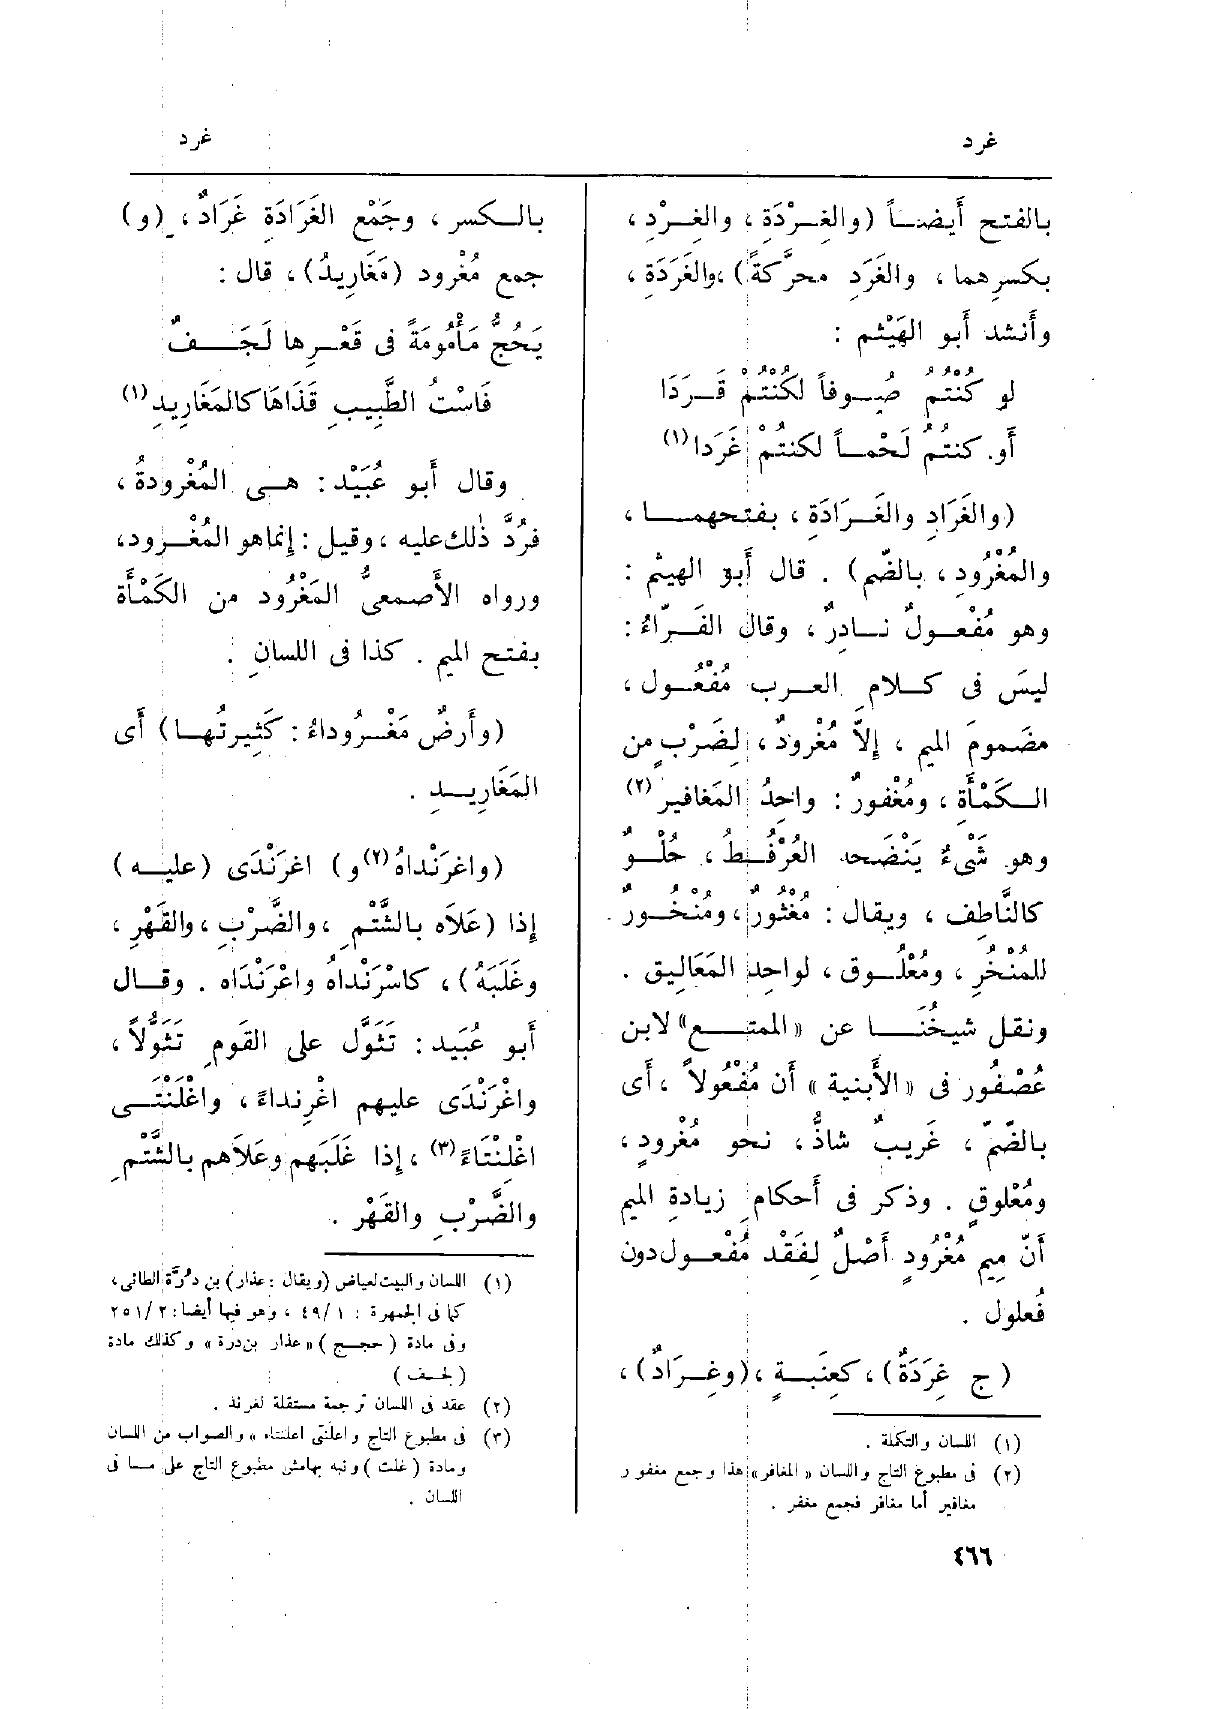 غرد
غرد
بالفتح أيضاً (والغِرْدَة ، والغِرْد ،
بكسرهما ، والغَرَدِ محرَّكةً) ، والغَرَدَةِ ،
وأنشد أبو الهَيْثم :
لو كنتُمُ صُوفاً لكُنْتُمْ قَرَدَا
أو كنتُمُ لَحْماً لكنتُمْ غَرَدا (١)
(والغَرَادِ والغَرَادَةِ ، بفتحهما ،
والمُغْرُودِ ، بالضّم) . قال أبو الهيثم :
وهو مُفْعولٌ نادرٌ ، وقال الفَرّاءُ :
ليسَ فى كلامِ العرب مُفْعُول ،
مضمومَ الميم ، إلاّ مُغْرودٌ ، لِضَرْبٍ من
الكَمْأَة ، ومُغْفورٌ : واحِدُ المَغافير (٢)
وهو شَىْءٌ يَنْضَحه العُرْفُطُ ، حُلْوٌ
كالنَّاطِف ، ويقال : مُغْثورٌ ، ومُنْخُورٌ
للمُنْخُرِ ، ومُعْلُوق ، لواحِد المَعَاليق .
ونقل شيخُنَا عن «الممتع» لابن
عُصْفُور فى «الأَبنية» أن مُفْعُولاً ، أى
بالضّمّ ، غَريبٌ شاذٌّ ، نحو مُغْرودٍ ،
ومُعْلوقٍ . وذكر فى أَحكامِ زيادةِ الميم
أَنّ مِيم مُغْرُودٍ أَصْلٌ لِفَقْد مُفْعول دون
فُعلول .
(ج غِرَدَةٌ) ، كعِنَبَةٍ ، (وغِرَادٌ) ،
(١) اللسان والتكملة .
(٢) فى مطبوع التاج واللسان «المغافر» هذا وجمع مغفور
مغافير أما مغافر فجمع مغفر .
٤٦٦
بالكسر ، وجَمْع الغَرَادَةِ غَرَادٌ ، (و)
جمع مُغْرود (مَغَارِيدُ) ، قال :
يَحُجُّ مَأْمُومَةً فى قَعْرِها لَجَفٌ
فَاسْتُ الطَّبِيبِ قَذَاهَا كالمَغَارِيدِ (١)
وقال أَبو عُبَيْد : هى المُغْرودةُ ،
فرُدَّ ذٰلك عليه ، وقيل : إنما هو المُغْرود ،
ورواه الأَصمعىُّ المَغْرُود من الكَمْأَة
بفتح الميم . كذا فى اللسانِ .
(وأَرضٌ مَغْرُوداءُ : كَثِيرتُها) أى
المَغَارِيدِ .
(واغرَنْداهُ (٢) و) اغرَنْدَى (عليه)
إذا (عَلاَه بالشَّتْمِ ، والضَّرْبِ ، والقَهْرِ ،
وغَلَبَهُ) ، كاسْرَنْداهُ واعْرَنْدَاه . وقال
أَبو عُبَيد : تَثَوَّل على القَومِ تَثَوُّلاً ،
واغْرَنْدَى عليهم اغْرِنداءً ، واغْلَنْتَى
اغْلِنْتَاءً (٣) ، إذا غَلَبَهم وعَلاَهم بالشَّتْمِ
والضَّرْبِ والقَهْر .
(١) اللسان والبيت لعياض (ويقال : عذار) بن دُرّة الطائى ،
كما فى الجمهرة : ١/٤٩ ، وهو فيها أيضا : ٢/٢٥١
وفى مادة (حجج) «عذار بن درة» وكذلك مادة
(لجف)
(٢) عقد فى اللسان ترجمة مستقلة لغرند .
(٣) فى مطبوع التاج واعلنتى اعلنتاء» والصواب من اللسان
ومادة (غلت) ونبه بهامش مطبوع التاج على ما فى
اللسان .